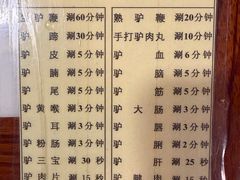 驴鞭 涮60分钟 熟驴鞭 涮2分钟
驴蹄 涮30分钟 手打驴肉丸 涮10分钟
驴皮 涮5分钟 驴血 涮6分钟
驴腩 涮5分钟 驴脑 涮5分钟
驴尾 涮5分钟 驴筋 涮5分钟
驴黄喉 涮3分钟 驴大肠 涮3分钟
驴耳 涮3分钟 驴唇 涮3分钟
驴粉肠 涮3分钟 驴脷 涮2分钟
驴三宝 涮30秒 驴肝 涮25秒
驴肉片 涮15秒 驴腱肉 涮15秒